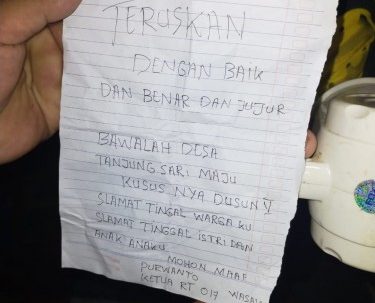 TERUSKAN
DENGAN BAIK
DAN BENAR DAN JUJUR
BAWALAH DESA
TANJUNG SARI MAJU
KUSUS NYA DUSUN VI
SLAMAT TINGAL WARGA KU
SLAMAT TINGGAL ISTRI DAN
ANAK ANAKU
MOHON MAAF
PURWANTO WASALAM
KETUA RT 017